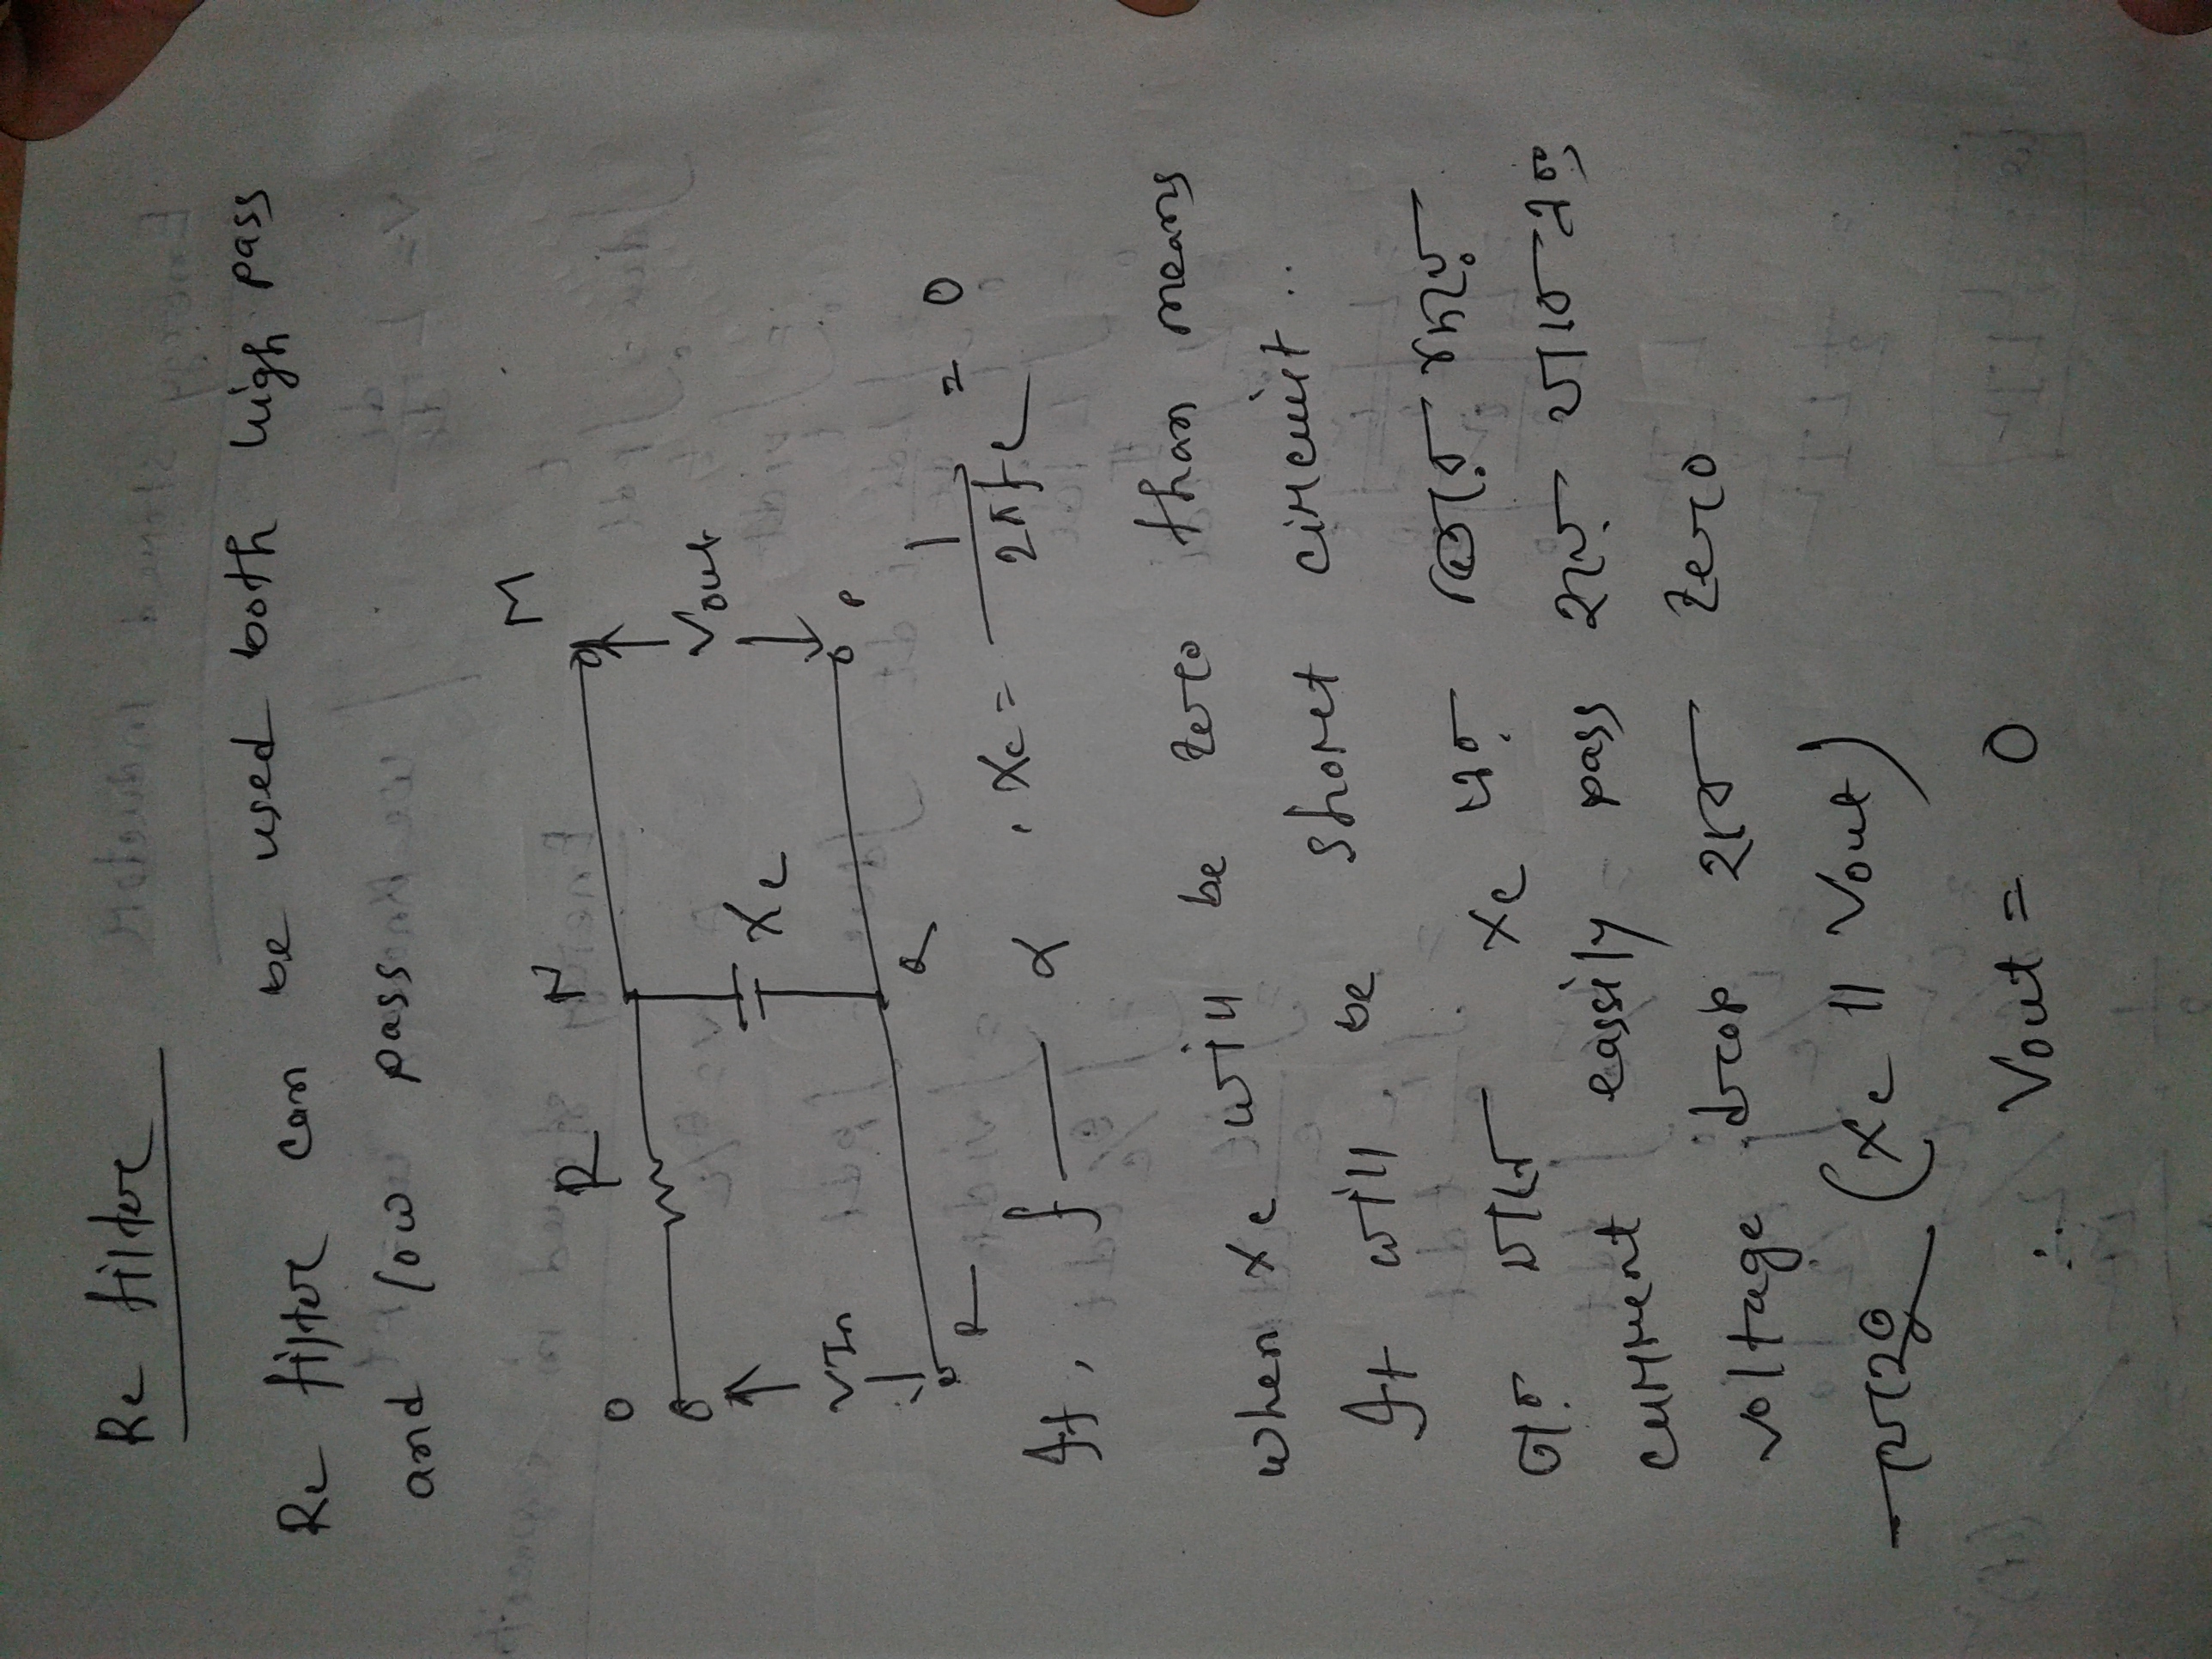 Rc filter
Rc filter can be used both high pass
and low pass
M
N
R
O
Vout
Xc
VIn
P
Q
R
If, f — α , Xc = 1/2πfc = 0
when Xc will be zero than means
It will be short circuit..
তার মানে Xc এর ভিতর দিয়ে
current eassily pass হয়ে যাবে এবং
voltage drop হবে zero
যেহেতু (Xc || Vout)
∴ Vout = 0